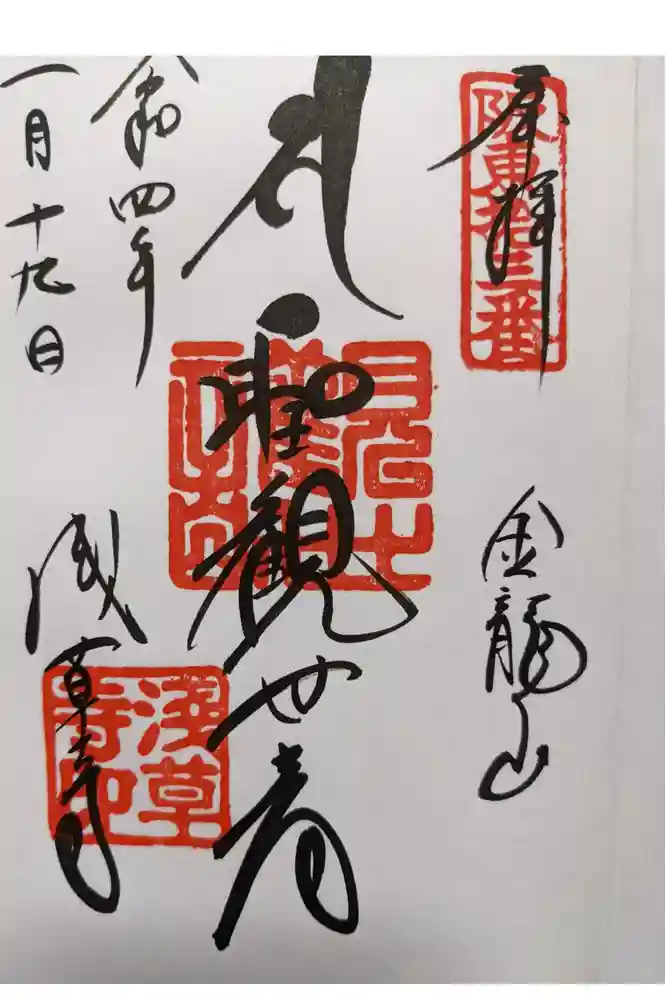 奉拝
坂東拾三番
金龍山
聖観世音
浅草寺
淺草寺印
令和四年
一月十九日